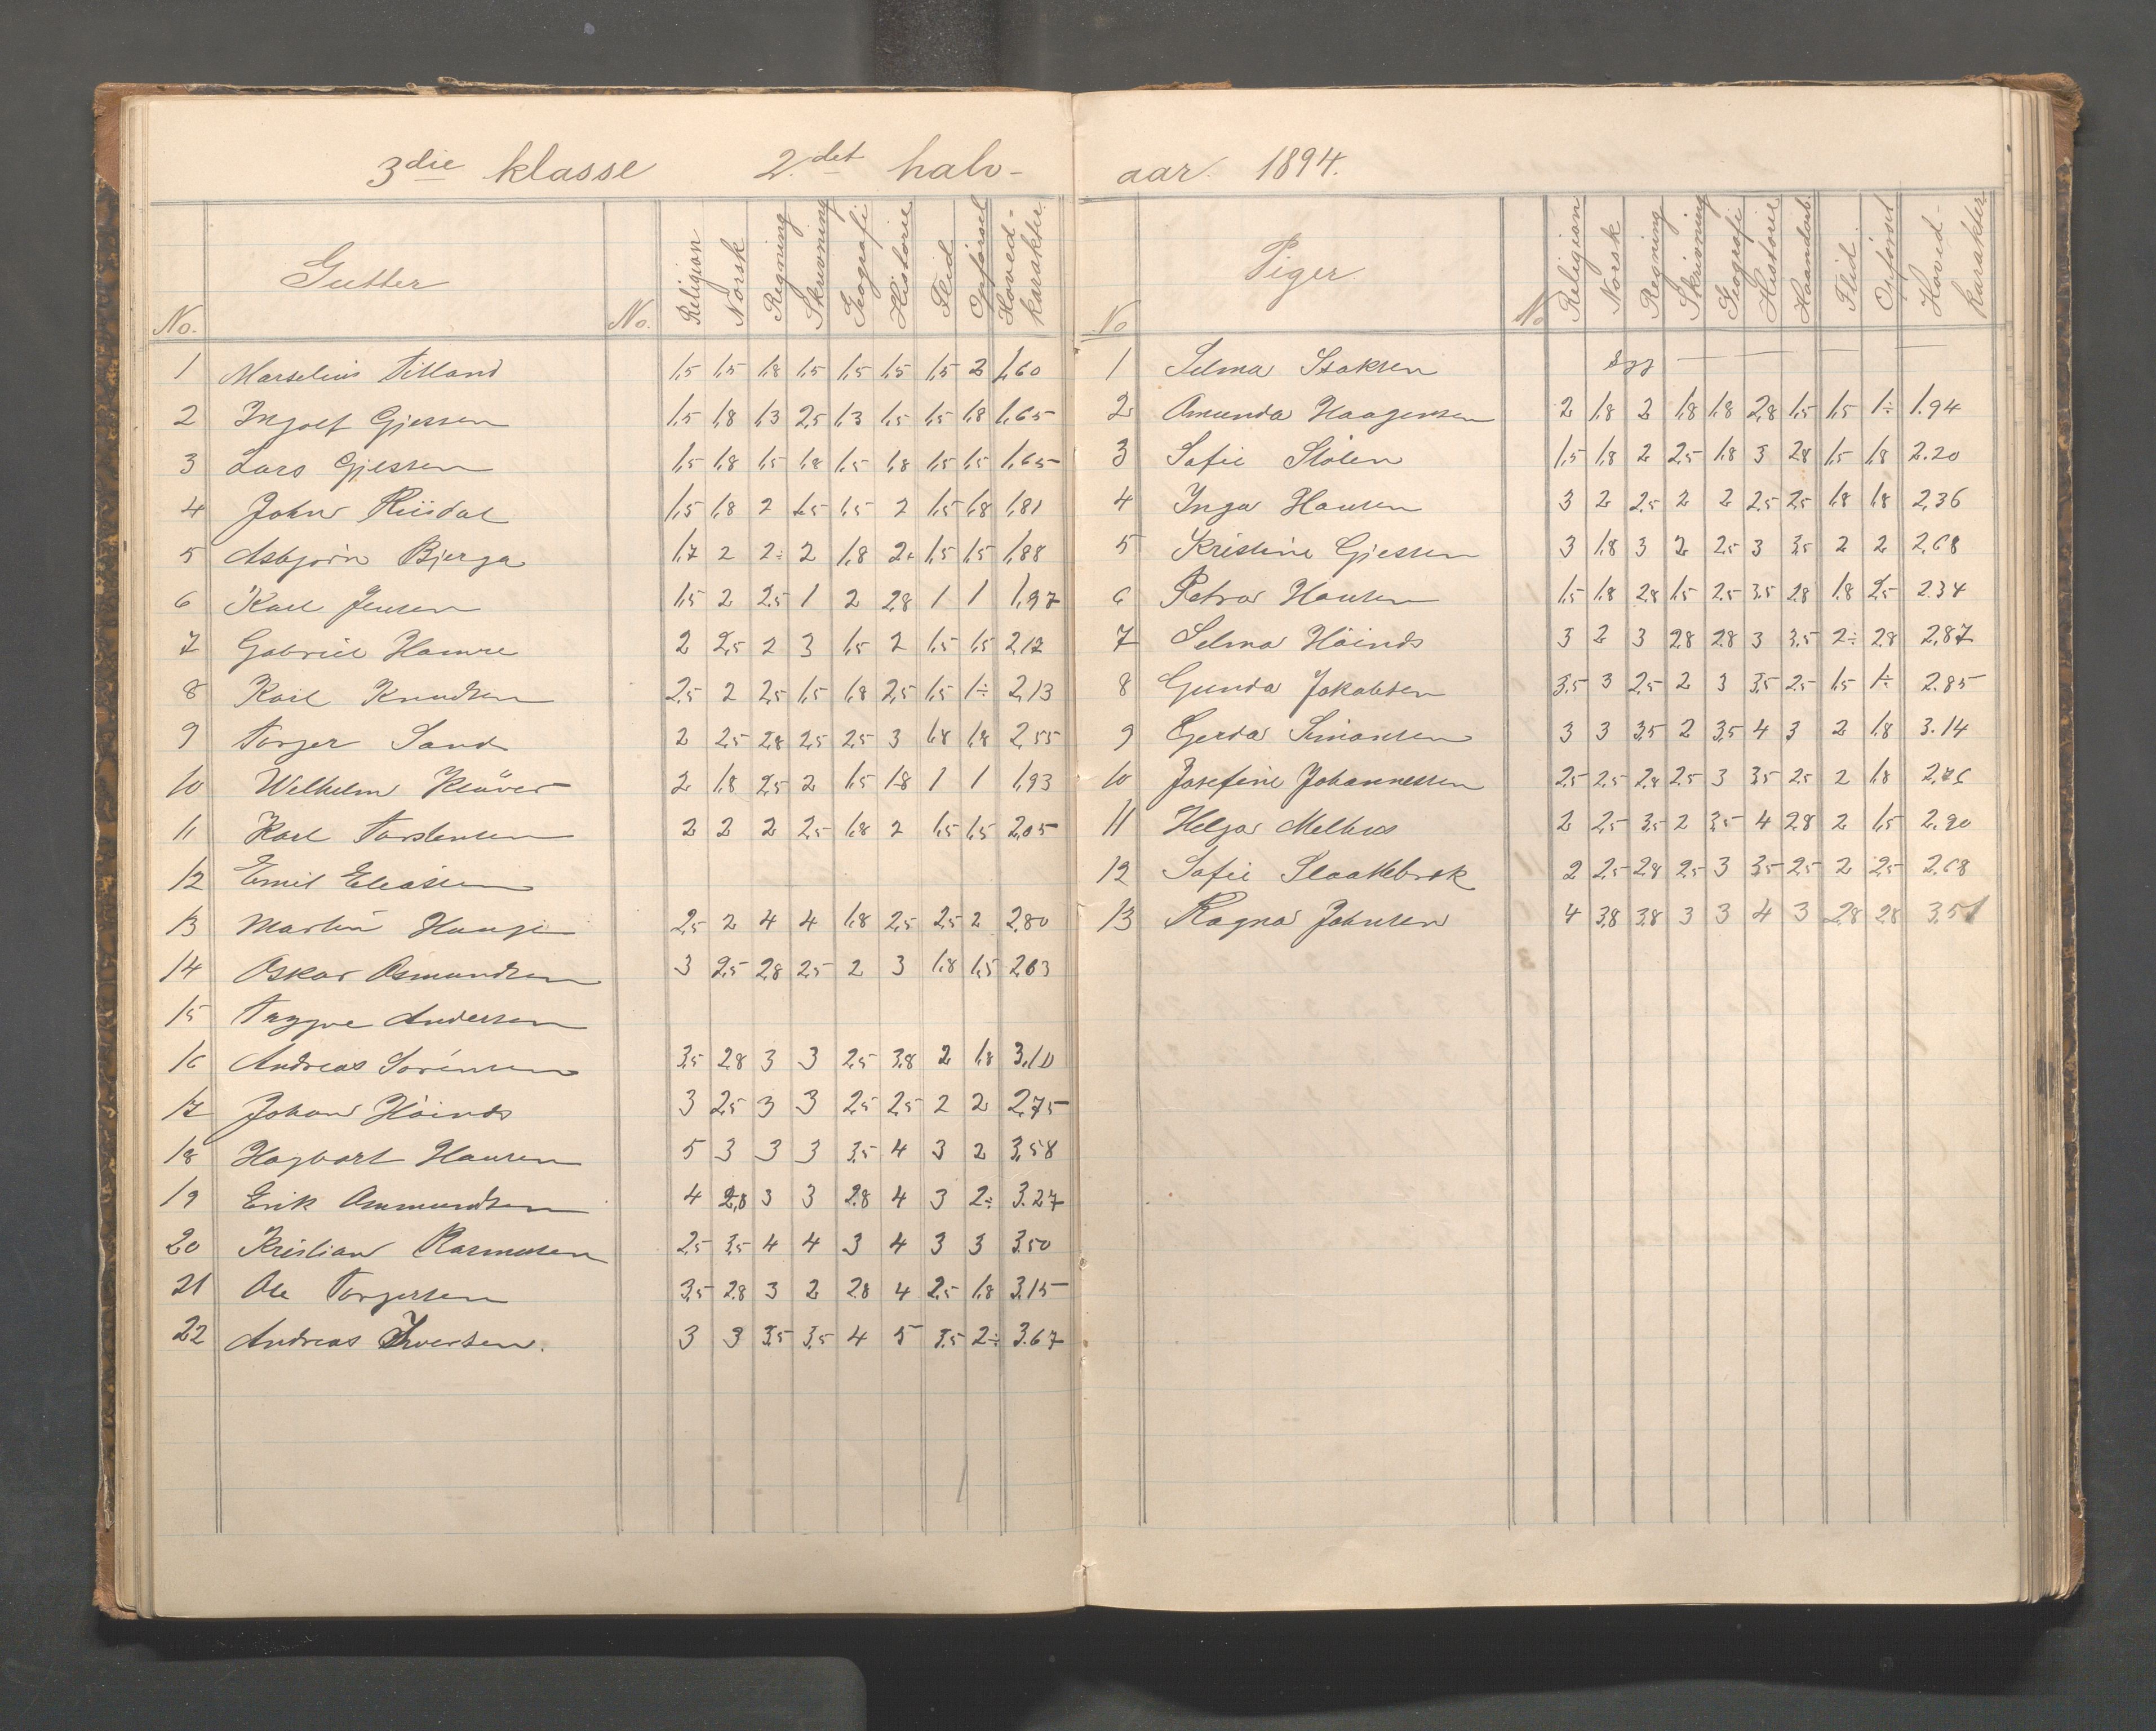 3die klasse 2det halv-
No. Gutter No. Religion Norsk Regning Skrivning Geografi Historie Flid Opførsel Hoved-karakter
1 Marselius Titland 1,5 1,5 1,8 1,5 1,5 1,5 1,5 2 1,60
2 Ingolf Gjessen 1,5 1,8 1,3 2,5 1,3 1,5 1,5 1,8 1,65
3 Lars Gjessen 1,5 1,8 1,5 1,8 1,5 1,8 1,5 1,5 1,65
4 John Riisdal 1,5 1,8 2 2,5 1,5 2 1,5 1,8 1,81
5 Asbjørn Bjerga 1,7 2 2÷ 2 1,8 2+ 1,5 1,5 1,88
6 Karl Jensen 1,5 2 2,5 1 2 2,8 1 1 1,97
7 Gabriel Hamre 2 2,5 2 3 1,5 2 1,5 1,5 2,17
8 Karl Knudsen 2,5 2 2,5 1,5 1,8 2,5 1,5 1÷ 2,13
9 Torger Sand 2 2,5 2,8 2,5 2,5 3 1,8 1,8 2,55
10 Wilhelm Kløver 2 1,8 2,5 2 1,5 1,8 1 1 1,93
11 Karl Torstensen 2 2 2 2,5 1,8 2 1,5 1,5 2,05
12 Emil Eliassen
13 Martin Hauge 2,5 2 4 4 1,8 2,5 2,5 2 2,80
14 Oskar Osmundsen 3 2,5 2,8 2,5 2 3 1,8 1,5 2,63
15 Trygve Andersen
16 Andreas Sørensen 3,5 2,8 3 3 2,5 3,8 2 1,8 3,10
17 Johan Höinds 3 2,5 3 3 2,5 2,5 2 2 2,75
18 Hagbart Hansen 5 3 3 3 3,5 4 3 2 3,58
19 Erik Ommundsen 4 2,8 3 3 2,8 4 3 2÷ 3.27
20 Kristian Rasmussen 2,5 3,5 4 4 3 4 3 3 3,50
21 Ole Torgersen 3,5 2,8 3 2 2,8 4 2,5 1,8 3,15
22 Andreas Iversen. 3 3 3,5 3,5 4 5 3,5 2÷ 3.67
aar. 1894.
No Piger No Religion Norsk Regning Skrivning Geografi Historie Haandarb. Flid Opførsel Hoved-karakter
1 Selma Isaksen syg
2 Amunda Haagensen 2 1,8 2 1,8 1,8 2,8 1,5 1,5 1÷ 1.94
3 Sofie Stølen 1,5 1,8 2 2,5 1,8 3 2,8 1,5 1,8 2.20
4 Inga Hansen 3 2 2,5 2 2 2,5 2,5 1,8 1,8 2,36
5 Kristine Gjessen 3 1,8 3 2 2,5 3 3,5 2 2 2,68
6 Petra Hansen 1,5 1,8 2,8 1,5 2,5 3,5 2,8 1,8 2,5 2.34
7 Selma Höinds 3 2 3 2,8 2,8 3 3,5 2÷ 2,8 2,87
8 Gunda Jakobsen 3,5 3 2,5 2 3 3,5 2,5 1,5 1÷ 2.85
9 Gerda Simonsen 3 3 3,5 2 3,5 4 3 2 1,8 3.14
10 Josefine Johannessen 2,5 2,5 2,8 2,5 3 3,5 2,5 2 1,8 2,76
11 Helga Melhus 2 2,5 3,5 2 3,5 4 2,8 2 1,5 2,90
12 Sofie Slaattebrek 2 2,5 2,8 2,5 3 3,5 2,5 2 2,5 2,68
13 Ragna Johnsen 4 3,8 3,8 3 3 4 3 2,8 2,8 3,51